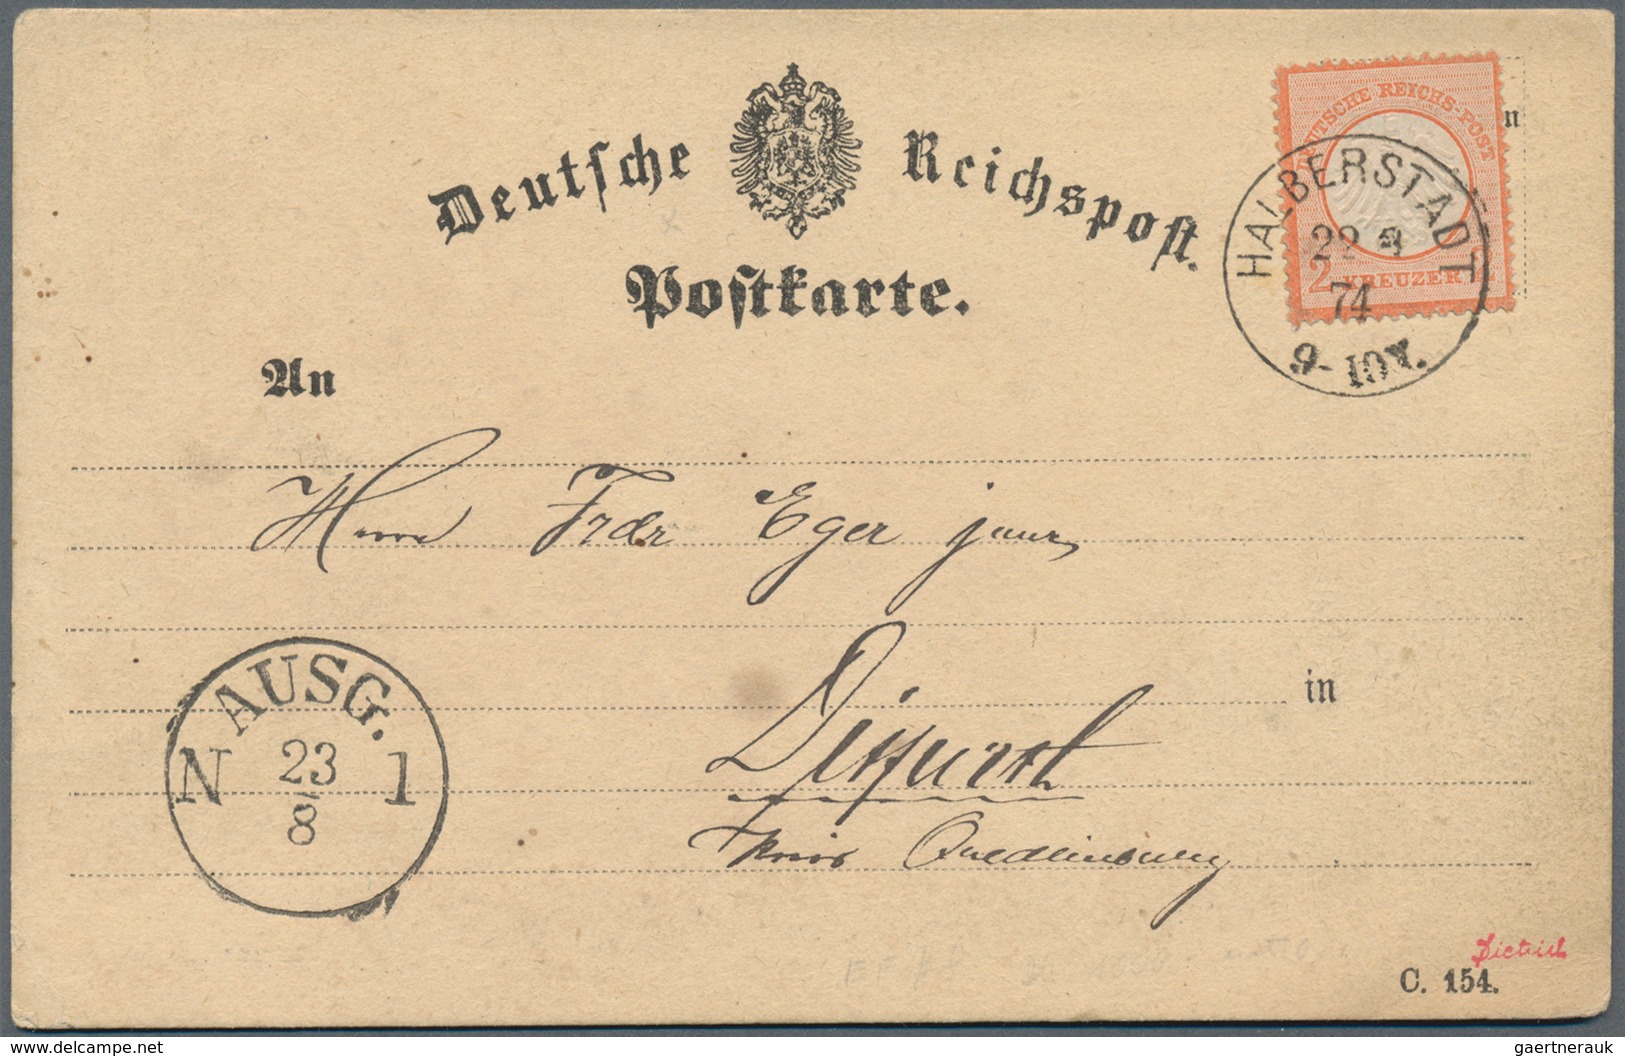 Deutsche Reichspost.
Postkarte.
DEUTSCHE REICHS-POST
2 KREUZER
n
HALBERSTADT
22 8
74
9-10 V.
An
Herrn Frdr Eger jun
in
Ditfurth
Kreis Quedlinburg
AUSG.
N 1
23
8
Dietrich
C. 154.
delcampe.net
gaertnerauk